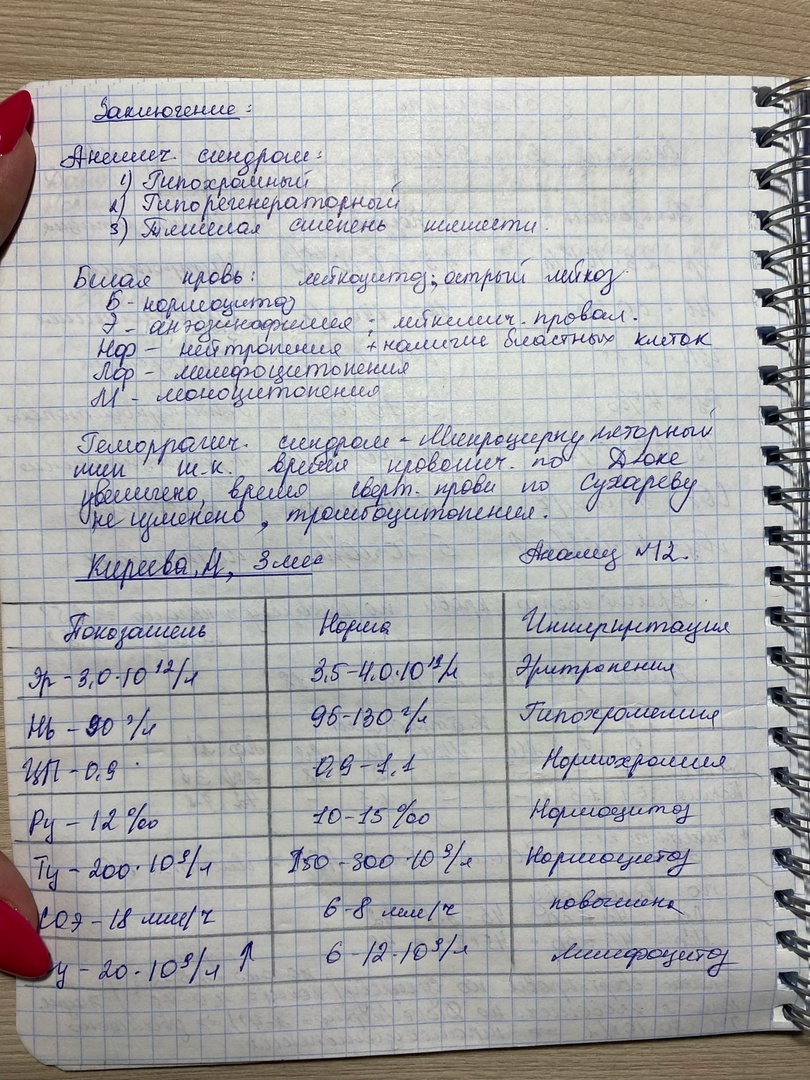 Заключение:
Анемич. синдром:
1) Гипохромный
2) Гипорегенераторный
3) Тяжелая степень тяжести.
Белая кровь: лейкоцитоз; острый лейкоз
Б - нормоцитоз
Э - анэозинофилия; лейкемич. провал.
Нф - нейтропения + наличие бластных клеток
Лф - лимфоцитопения
М - моноцитопения
Геморрагич. синдром - Микроциркуляторный
тип т.к. время кровотеч. по Дюке
увеличено, время сверт. крови по Сухареву
не изменено, тромбоцитопения.
Киреева, М, 3 мес Анализ №12.
Показатель Норма Интерпритация
Эр - 3,0·10¹²/л 3,5-4,0·10¹²/л Эритропения
Hb - 90 г/л 95-130 г/л Гипохромемия
ЦП - 0,9 0,9-1,1 Нормохромия
Рц - 12 ‰ 10-15 ‰ Нормоцитоз
Тц - 200·10⁹/л 150-300·10⁹/л Нормоцитоз
СОЭ - 18 мм/ч 6-8 мм/ч повышена
ц - 20·10⁹/л ↑ 6-12·10⁹/л лимфоцитоз